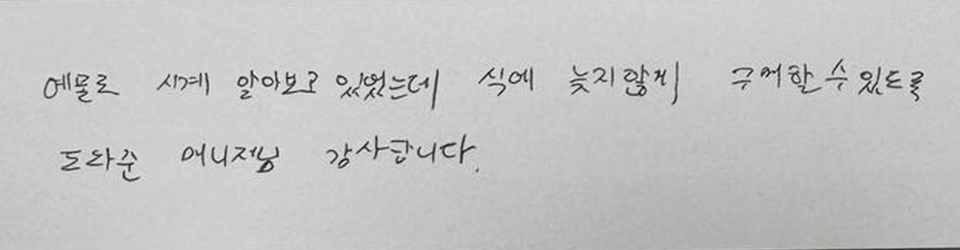 예물로 시계 알아보고 있었는데 식에 늦지않게 구매할 수 있도록
도와준 매니저님 감사합니다.